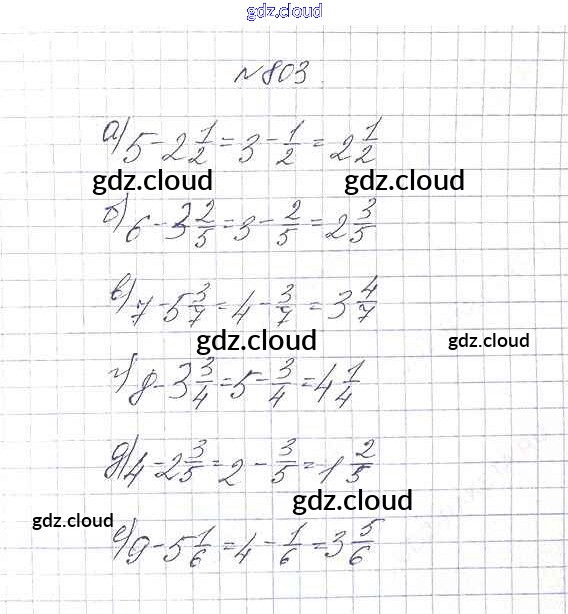 gdz.cloud
№803
а) 5 - 2 1/2 = 3 - 1/2 = 2 1/2
gdz.cloud gdz.cloud
б) 6 - 3 2/5 = 3 - 2/5 = 2 3/5
в) 7 - 5 3/7 = 4 - 3/7 = 3 4/7
gdz.cloud gdz.cloud
г) 8 - 3 3/4 = 5 - 3/4 = 4 1/4
д) 4 - 2 3/5 = 2 - 3/5 = 1 2/5
gdz.cloud
gdz.cloud
е) 9 - 5 1/6 = 4 - 1/6 = 3 5/6